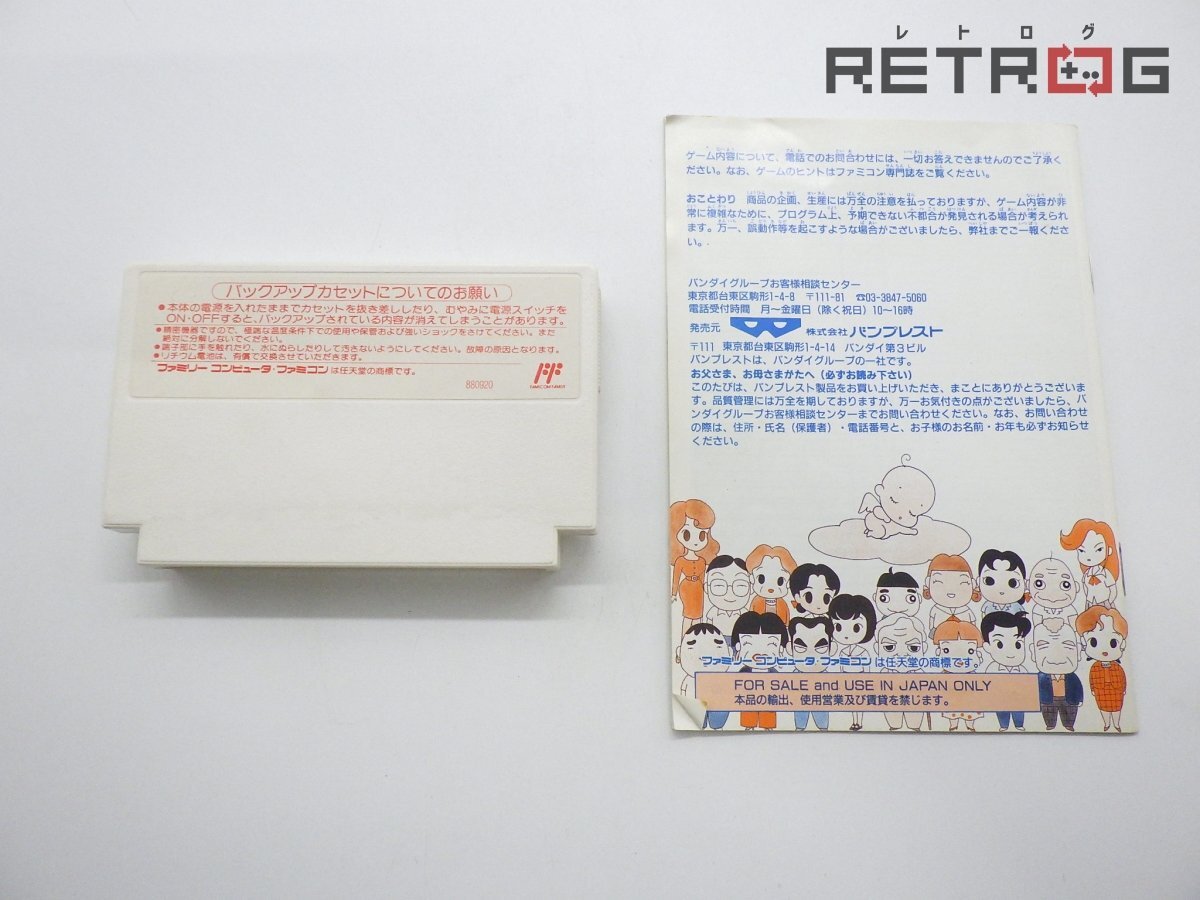 レトログ
RETROG
バックアップカセットについてのお願い
●本体の電源を入れたままでカセットを抜き差ししたり、むやみに電源スイッチを
ON・OFFすると、バックアップされている内容が消えてしまうことがあります。
●精密機器ですので、極端な温度条件下での使用や保管および強いショックをさけてください。また
絶対に分解しないでください。
●端子部に手を触れたり、水にぬらしたりして汚さないようにしてください。故障の原因となります。
●リチウム電池は、有償で交換させていただきます。
ファミリーコンピュータ・ファミコンは任天堂の商標です。
880920
FAMICOM FAMILY
ゲーム内容について、電話でのお問合わせには、一切お答えできませんのでご了承く
ださい。なお、ゲームのヒントはファミコン専門誌をご覧ください。
おことわり 商品の企画、生産には万全の注意を払っておりますが、ゲーム内容が非
常に複雑なために、プログラム上、予期できない不都合が発見される場合が考えられ
ます。万一、誤動作等を起こすような場合がございましたら、弊社までご一報くださ
い。
バンダイグループお客様相談センター
東京都台東区駒形1-4-8 〒111-81 ☎03-3847-5060
電話受付時間 月〜金曜日（除く祝日）10〜16時
発売元 株式会社バンプレスト
〒111 東京都台東区駒形1-4-14 バンダイ第3ビル
バンプレストは、バンダイグループの一社です。
お父さま、お母さまがたへ（必ずお読み下さい）
このたびは、バンプレスト製品をお買い上げいただき、まことにありがとうございま
す。品質管理には万全を期しておりますが、万一お気付きの点がございましたら、バ
ンダイグループお客様相談センターまでお問い合わせください。なお、お問い合わせ
の際は、住所・氏名（保護者）・電話番号と、お子様のお名前・お年も必ずお知らせ
ください。
ファミリーコンピュータ・ファミコンは任天堂の商標です。
FOR SALE and USE IN JAPAN ONLY
本品の輸出、使用営業及び賃貸を禁じます。